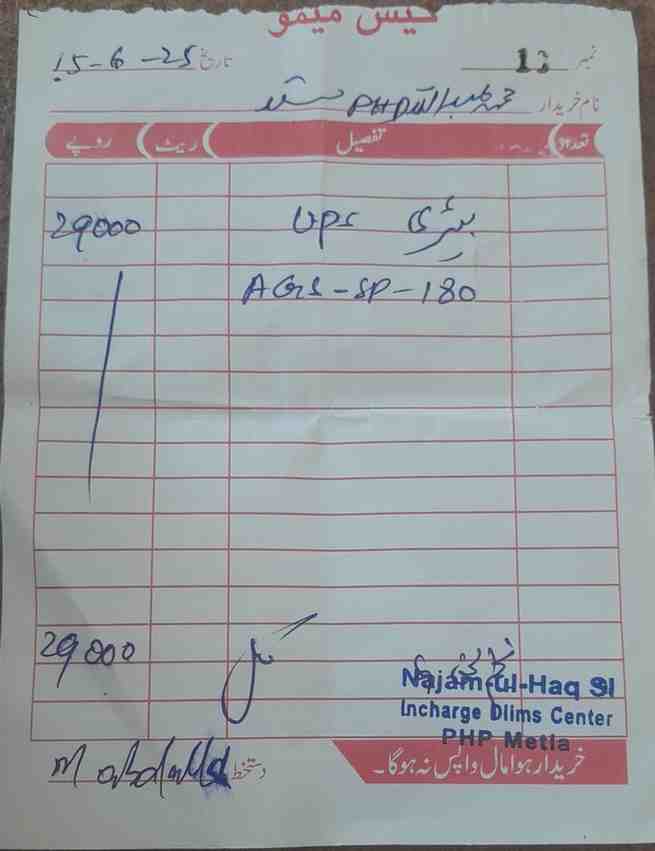 کیس میمو
نمبر 12 تاریخ 15-6-25
نام خریدار محمد عبداللہ PHP
تعداد تفصیل ریٹ روپے
بیٹری UPS 29000
AGS-SP-180
کل 29000
Najam-ul-Haq SI
Incharge Dlims Center
PHP Metla
دستخط M abdullah
خریدا ہوا مال واپس نہ ہوگا۔